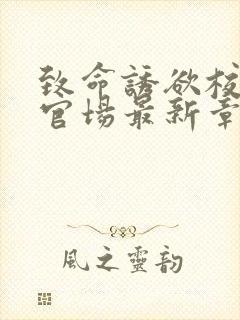 致命誘欲校
官場最新章
風之靈韵